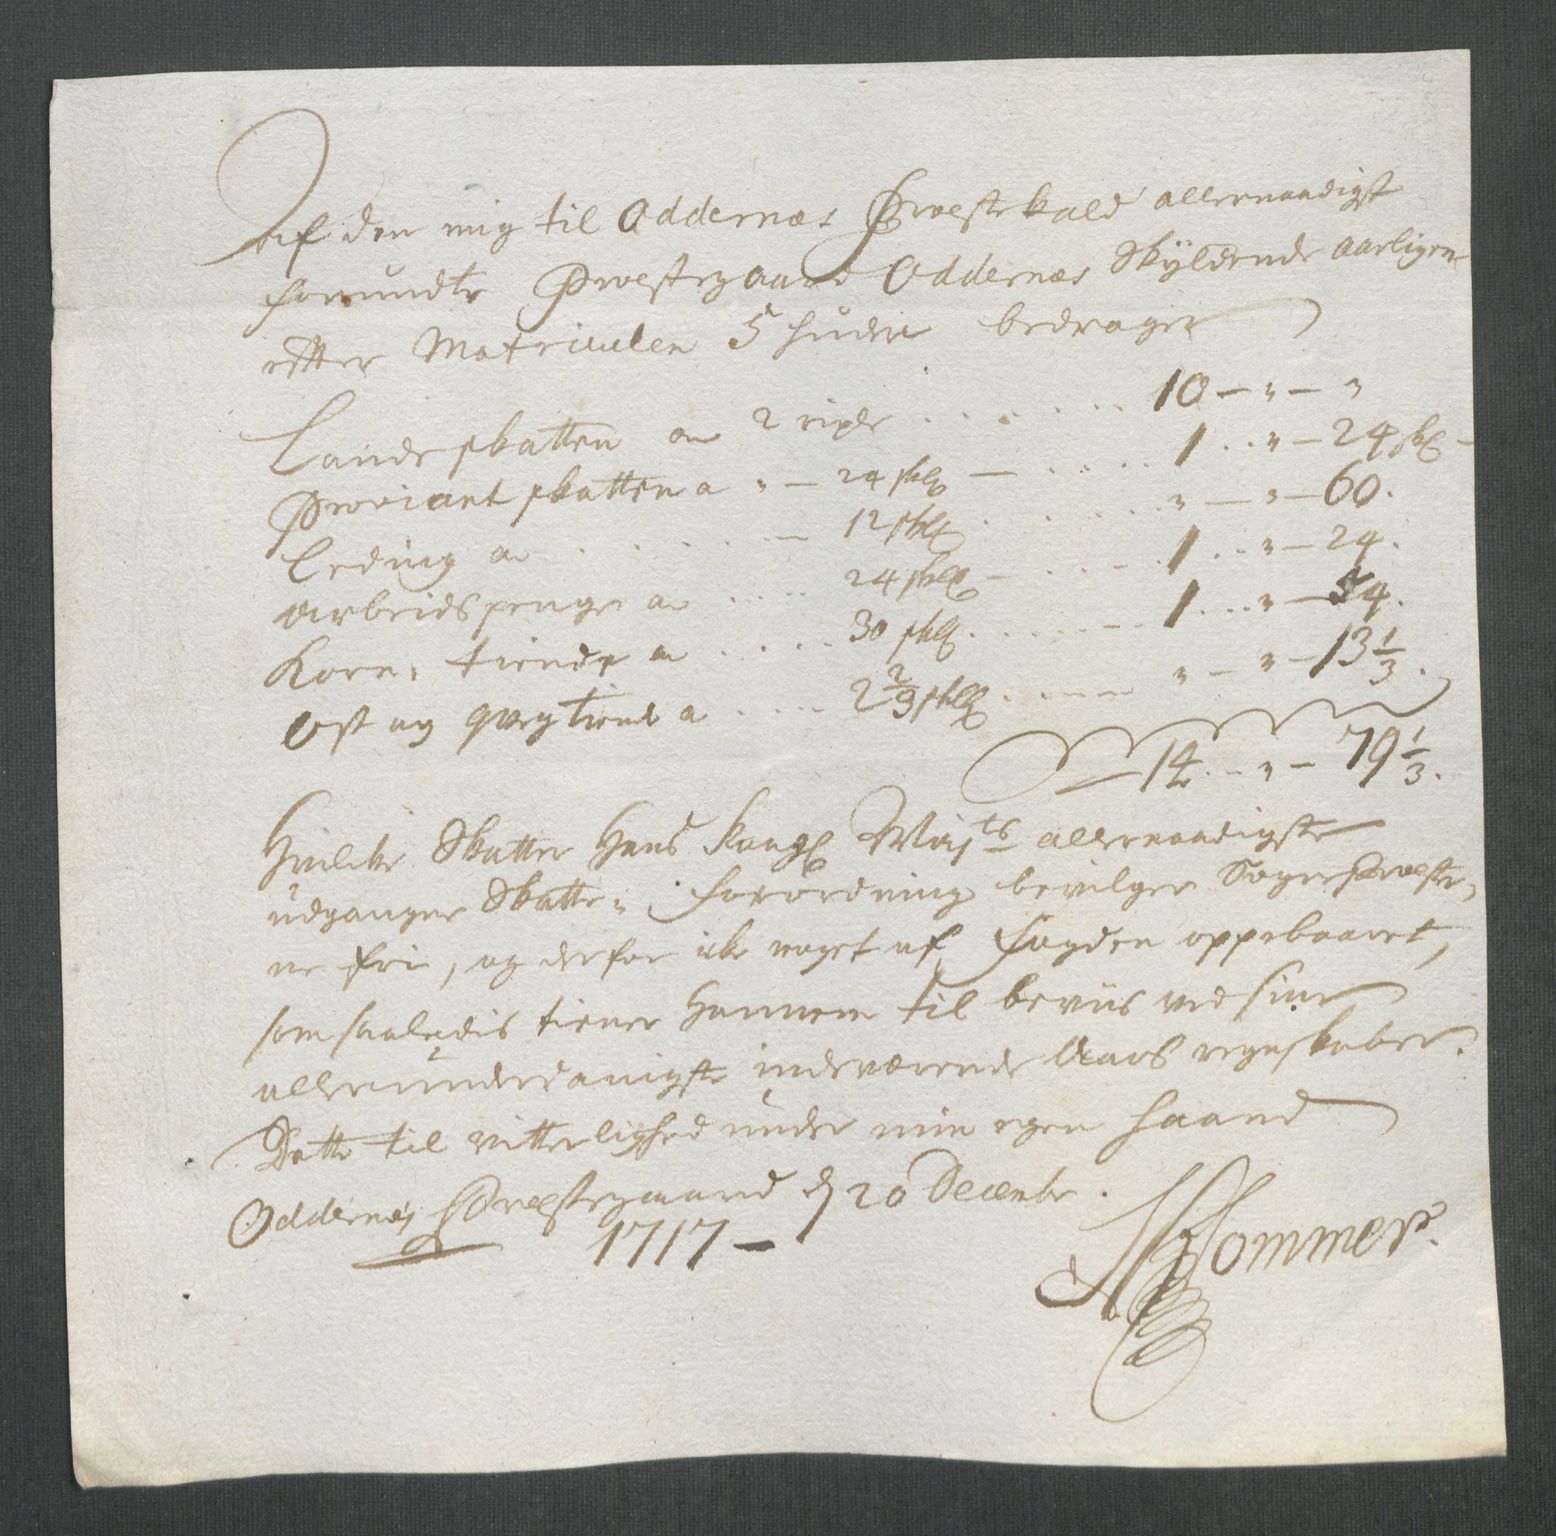 Af den mig til Oddernæs Præstekald allernaadigst
forundte Præstegaard Oddernæs Skyldende aarligen
effter Matriculen 5 huder bedrager
Landskatten a 2 rixdr ....... 10 - " - "
Proviant skatten a " - 24 skl - .... 1 .. " - 24 skl -
Leding a ..... - 12 skl ..... " - " - 60.
Arbeidspenge a .... 24 skl - .... 1 ... " - 24.
Korn: tiende a .... 30 skl ..... 1 ... " - 54.
Ost og qvegtiende a .... 2 2/3 skl .... " - " - 13 1/3.
14 .. " - 79 1/3.
Hvilke Skatter Hans Kongl Mayts allernaadigste
udgangne Skatte: forordning bevilger Sogne Præster,
ne fri, og derfor icke noget af Fogden oppebaaret,
som saaledis tiener hannem til beviis ved sine
allerunderdanigste indeværende Aars regnskaber.
Dette til vitterlighed under min egen haand
Oddernæs Præstegaard d 20 Decembr.
1717 -
Sommer